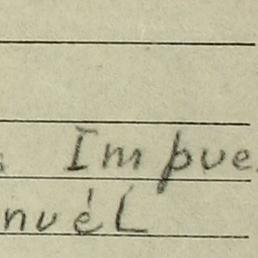 Impue
nuéL